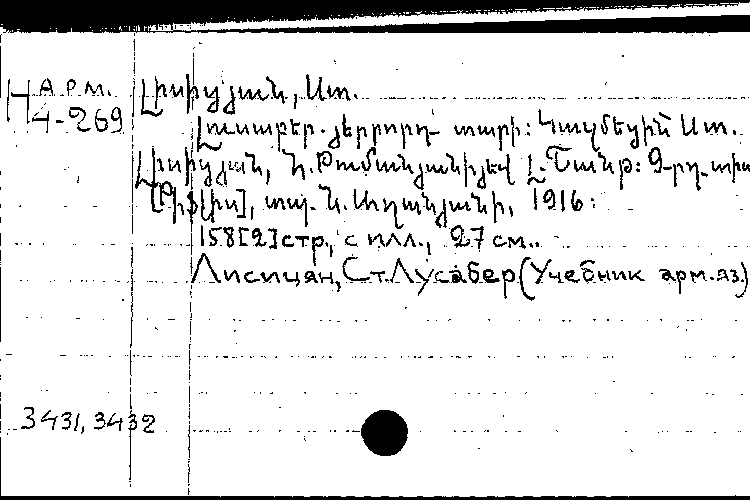 Н АРМ.
4-269
Լիսիցյան, Ստ.
Լուսաբեր. չերրորդ տարի: Կազմեցին Ստ.
Լիսիցյան, Հ. Թումանյանի չեվ Լ. Շանթ: 9-րդ. տիպ
[Թիֆլիս], տպ. Ն. Աղանյանի, 1916:
158[2] стр., с илл., 27 см..
Лисицян, Ст. Лусабер (Учебник арм.яз.)
3431, 3432